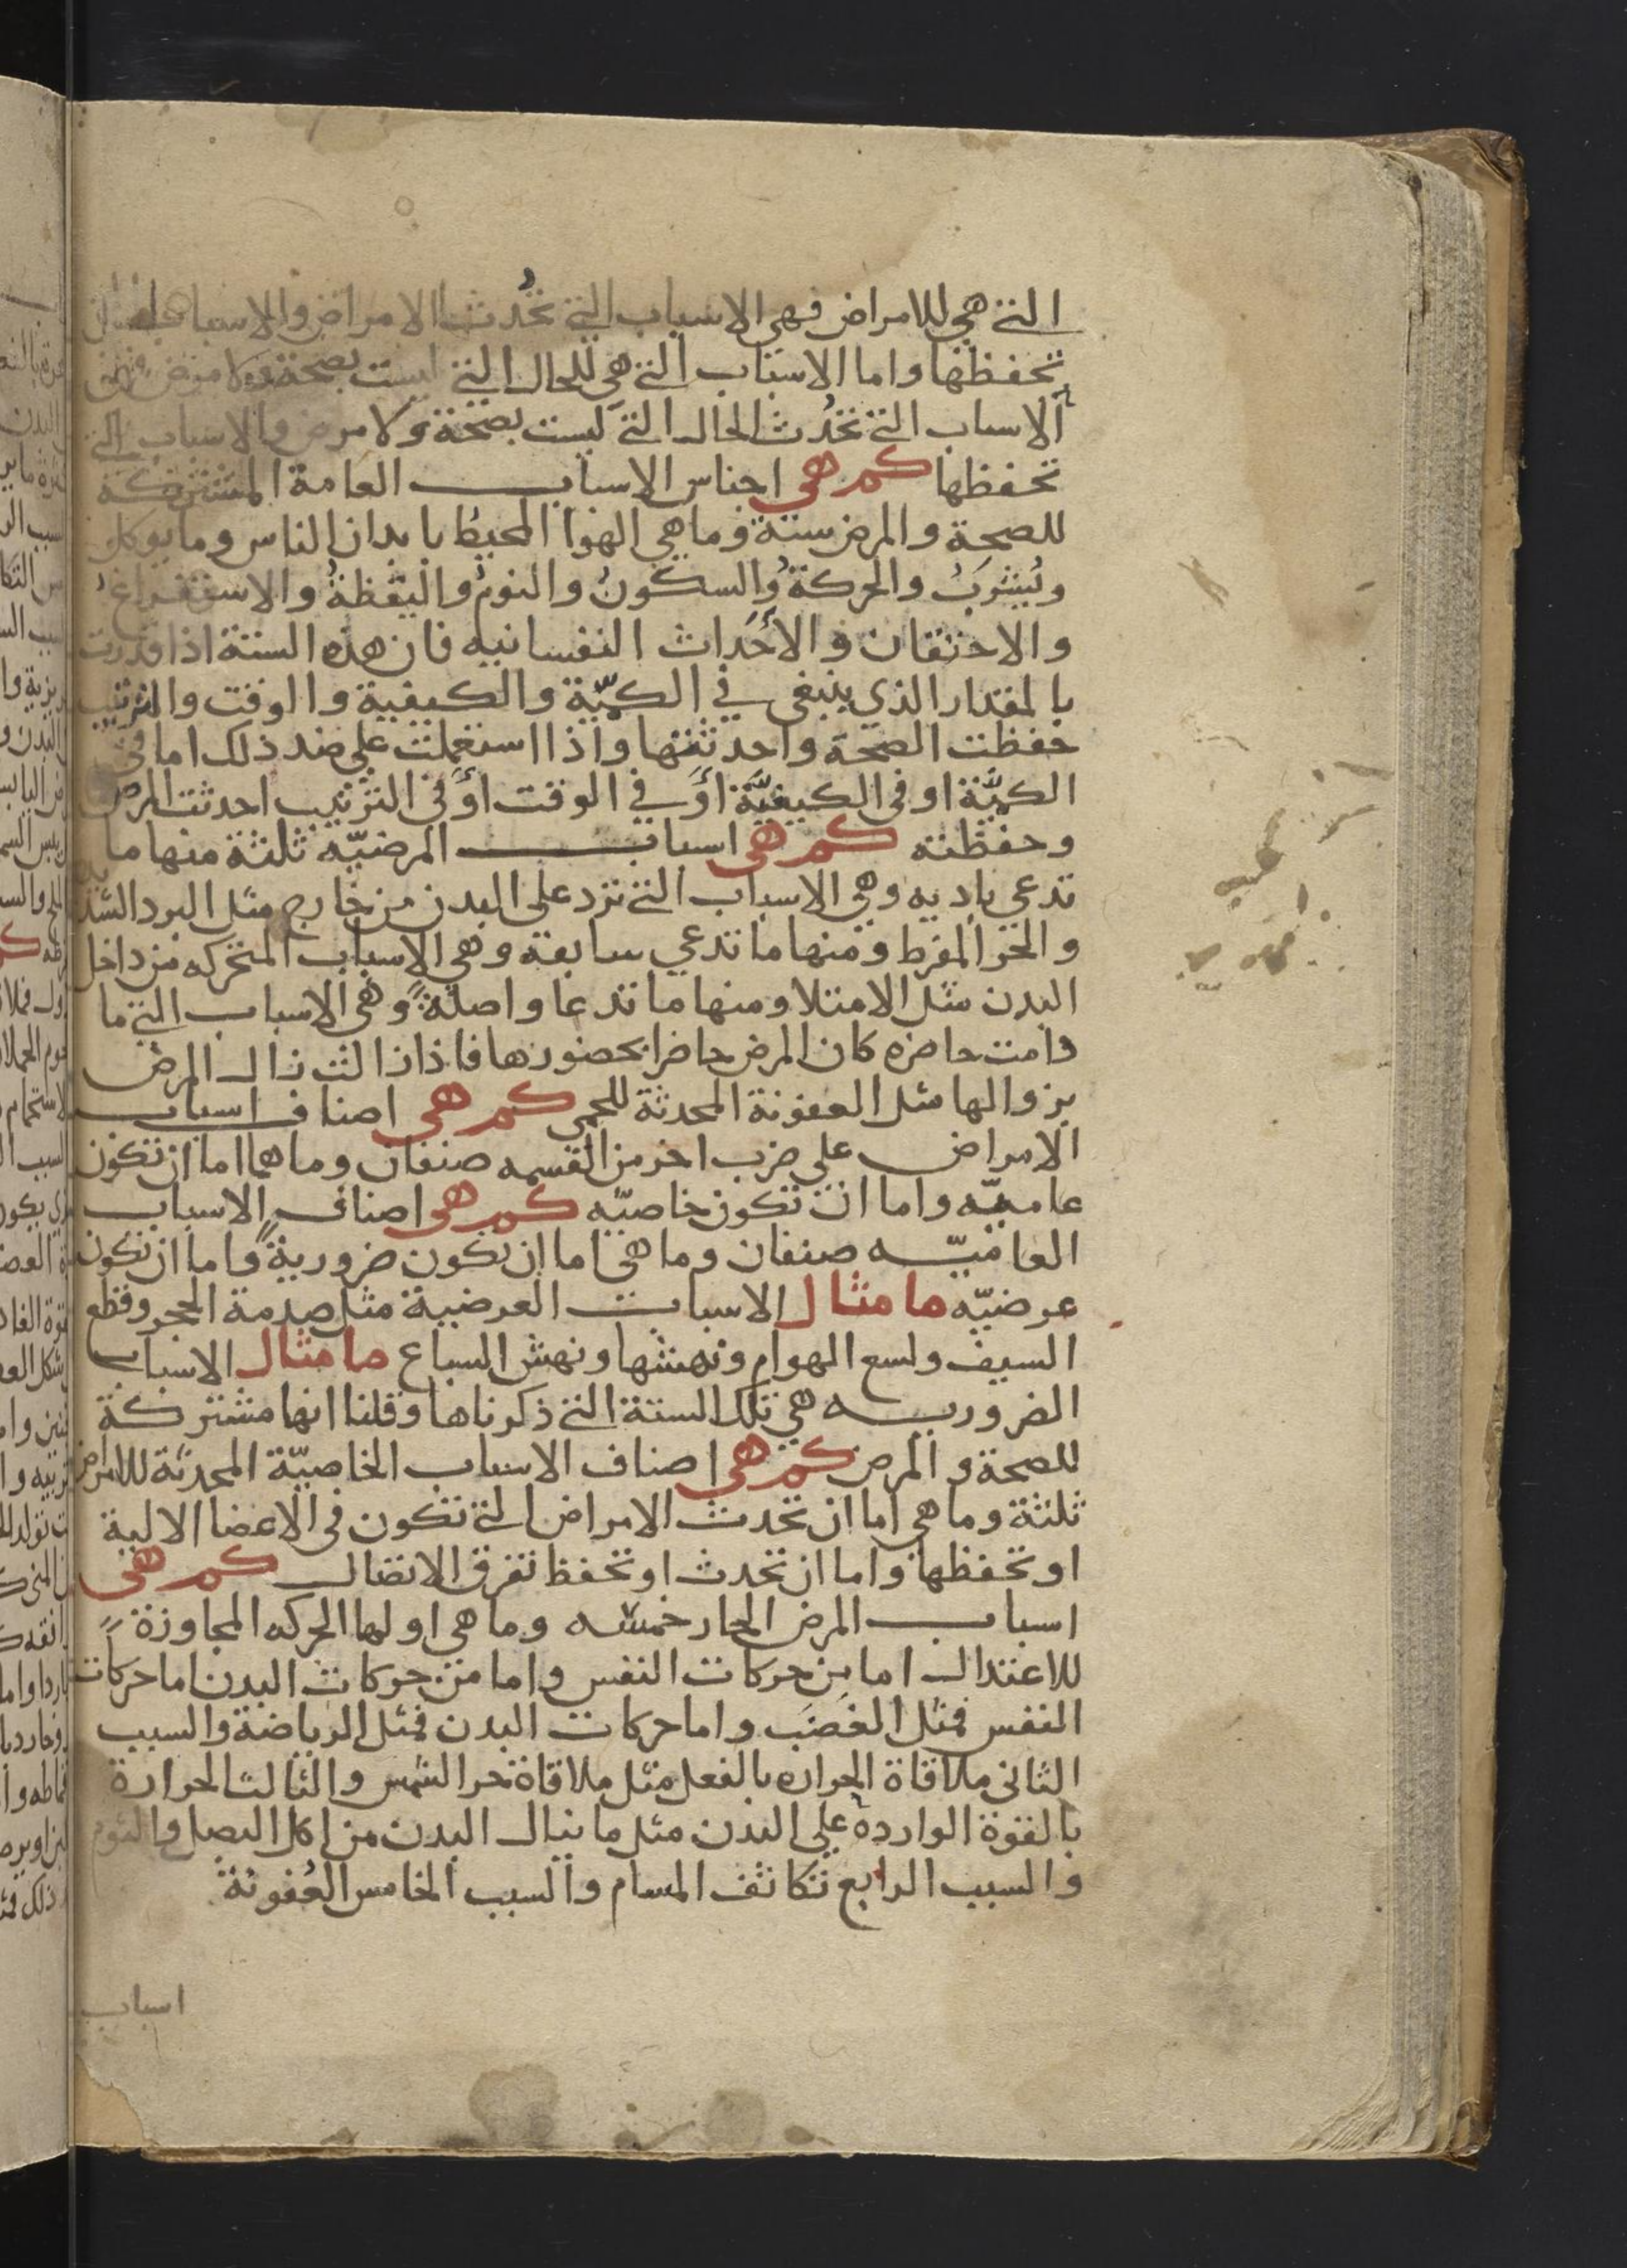 التي هي للامراض فهي الاسباب التي تحُدث الامراض والاسباب التي
تحفظها واما الاسباب التي هي للحال التي ليست بصحة ولا مرض فهي
الاسباب التي تحُدث الحال التي ليست بصحة ولا مرض والاسباب التي
تحفظها كم هي اجناس الاسباب العامة المشتركة
للصحة والمرض ستة وما هي الهوا المحيط بابدان الناس وما يوكل
ويُشربُ والحركةُ والسكونُ والنومُ واليقظةُ والاستفراغُ
والاحتقان والأحَداث النفسانيه فان هذه الستة اذا قدرت
بالمقدار الذي ينبغي في الكميّة والكيفية والوقت والترتيب
حفظت الصحة واحدثتها واذا استعملت على ضد ذلك اما في
الكميَّة او في الكيفيَّة أَو في الوقت أَو في الترتيب احدثت المرض
وحفظته كم هي اسباب المرضيّه ثلثة منها ما
تدعي باديه وهي الاسباب التي ترد على البدن من خارج مثل البرد الشديد
والحر المفرط ومنها ما تدعي سابقه وهي الاسباب المتحركه من داخل
البدن مثل الامتلا ومنها ما تدعا واصلةً وهي الاسباب التي ما
دامت حاضره كان المرض حاضرا بحضورها فاذا زالت زال المرض
بزوالها مثل العفونة المحدثة للحمي كم هي اصناف اسباب
الامراض على ضرب اخر من القسمه صنفان وما هما اما ان تكون
عاميّه واما ان تكون خاصيّه كم هي اصناف الاسباب
العاميّه صنفان وما هي اما ان تكون ضروريةً واما ان تكون
عرضيّه ما مثال الاسباب العرضية مثل صدمة الحجر وقطع
السيف ولسع الهوام ونهشها ونهش السباع ما مثال الاسباب
الضروريه هي تلك الستة التي ذكرناها وقلنا انها مشتركة
للصحة والمرض كم هي اصناف الاسباب الخاصيّة المحدثة للامراض
ثلثة وما هي اما ان تحدث الامراض التي تكون في الاعضا الالية
او تحفظها واما ان تحدث او تحفظ تفرق الاتصال كم هي
اسباب المرض الحار خمسه وما هي اولها الحركه المجاوزة
للاعتدال اما من حركات النفس واما من حركات البدن اما حركات
النفس فمثل الغضَب واما حركات البدن فمثل الرياضة والسبب
الثاني ملاقاة الحراره بالفعل مثل ملاقاة حر الشمس والثالث الحرارة
بالقوة الواردة على البدن مثل ما ينال البدن من اكل البصل والثوم
والسبب الرابع تكاثف المسام والسبب الخامس العُفونة
اسباب